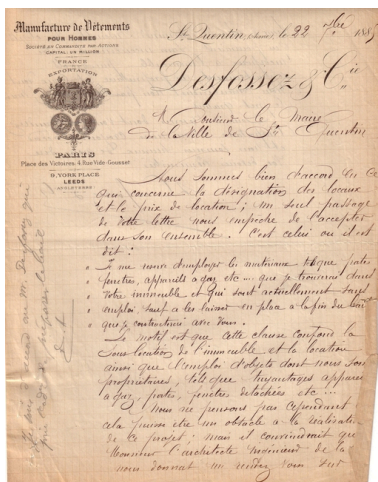 Manufacture de Vêtements
POUR HOMMES
SOCIÉTÉ EN COMMANDITE PAR ACTIONS
CAPITAL: UN MILLION
FRANCE
EXPORTATION
PARIS
Place des Victoires, 4, Rue Vide-Gousset
9, YORK PLACE
LEEDS
ANGLETERRE
St Quentin, (Aisne) le 22 7bre 188
Desfossez & Cie
Monsieur le Maire
de la Ville de St Quentin
Nous sommes bien d'accord en ce
qui concerne la désignation des locaux
et le prix de location; un seul passage
de votre lettre nous empêche de l'accepter
dans son ensemble. C'est celui où il est
dit:
" Je me réserve d'employer les matériaux tels que portes
" fenêtres, appareils à gaz etc... que je trouverai dans
" votre immeuble et qui sont actuellement sans
" emploi, sauf à les laisser en place à la fin du bail
" que je contracterai avec vous.
Le motif est que cette clause confond la
sous-location de l'immeuble et la location
ainsi que l'emploi d'objets dont nous sommes
propriétaires, tels que tuyautages appareils
à gaz, portes, fenêtres détachées etc...
Nous ne pensons pas cependant
que cela puisse être un obstacle à la réalisation
de ce projet; mais il conviendrait que
Monsieur l'architecte municipal de la
nous donnât un rendez-vous sur